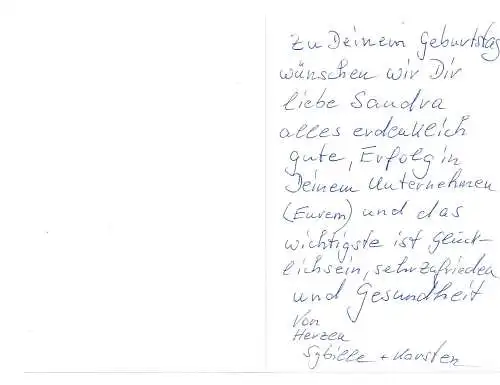 Zu Deinem Geburtstag
wünschen wir Dir
liebe Sandra
alles erdenklich
gute, Erfolg in
Deinem Unternehmen
(Eurem) und das
wichtigste ist Glück-
lichsein, sehr zufrieden
und Gesundheit
Von
Herzen
Sybille + Karsten